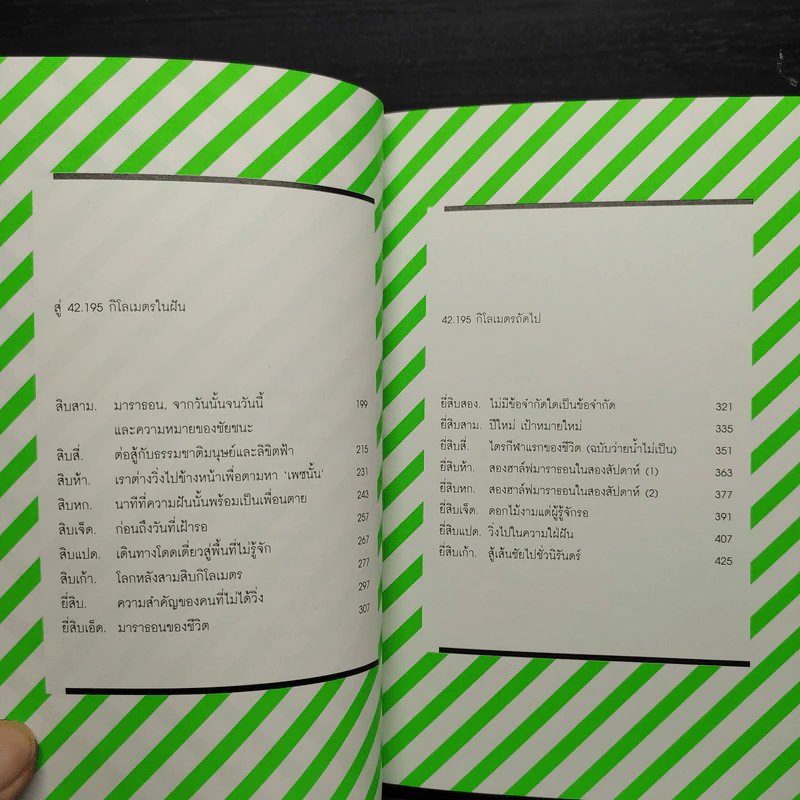 สู่ 42.195 กิโลเมตรในฝัน
สิบสาม. มาราธอน, จากวันนั้นจนวันนี้ 199
และความหมายของชัยชนะ
สิบสี่. ต่อสู้กับธรรมชาติมนุษย์และลิขิตฟ้า 215
สิบห้า. เราต่างวิ่งไปข้างหน้าเพื่อตามหา ‘เพซนั้น’ 231
สิบหก. นาทีที่ความฝันนั้นพร้อมเป็นเพื่อนตาย 243
สิบเจ็ด. ก่อนถึงวันที่เฝ้ารอ 257
สิบแปด. เดินทางโดดเดี่ยวสู่พื้นที่ไม่รู้จัก 267
สิบเก้า. โลกหลังสามสิบกิโลเมตร 277
ยี่สิบ. ความสำคัญของคนที่ไม่ได้วิ่ง 297
ยี่สิบเอ็ด. มาราธอนของชีวิต 307
42.195 กิโลเมตรถัดไป
ยี่สิบสอง. ไม่มีข้อจำกัดใดเป็นข้อจำกัด 321
ยี่สิบสาม. ปีใหม่ เป้าหมายใหม่ 335
ยี่สิบสี่. ไตรกีฬาแรกของชีวิต (ฉบับว่ายน้ำไม่เป็น) 351
ยี่สิบห้า. สองฮาล์ฟมาราธอนในสองสัปดาห์ (1) 363
ยี่สิบหก. สองฮาล์ฟมาราธอนในสองสัปดาห์ (2) 377
ยี่สิบเจ็ด. ดอกไม้งามแด่ผู้รู้จักรอ 391
ยี่สิบแปด. วิ่งไปในความใฝ่ฝัน 407
ยี่สิบเก้า. สู้เส้นชัยไปชั่วนิรันดร์ 425